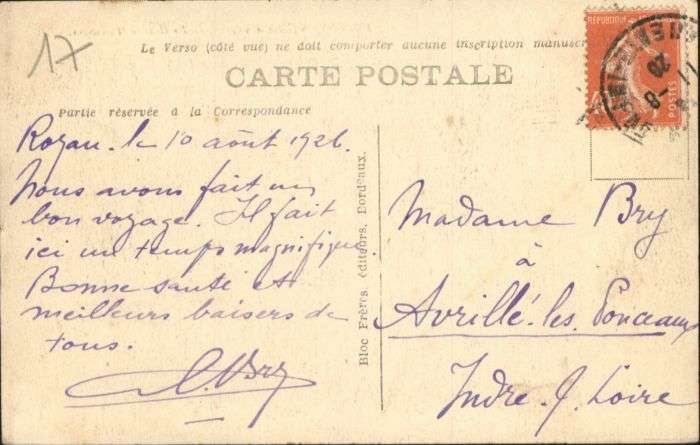 17
Le Verso (côté vue) ne doit comporter aucune inscription manuscr
CARTE POSTALE
Partie réservée à la Correspondance
Royan. le 10 août 1926.
Nous avons fait un
bon voyage. Il fait
ici un temps magnifique.
Bonne santé et
meilleurs baisers de
tous.
Bry
Bloc Frères éditeurs, Bordeaux.
REPUBLIQUE
POSTES
Madame Bry
à
Avrillé-les-Ponceaux
Indre-&-Loire